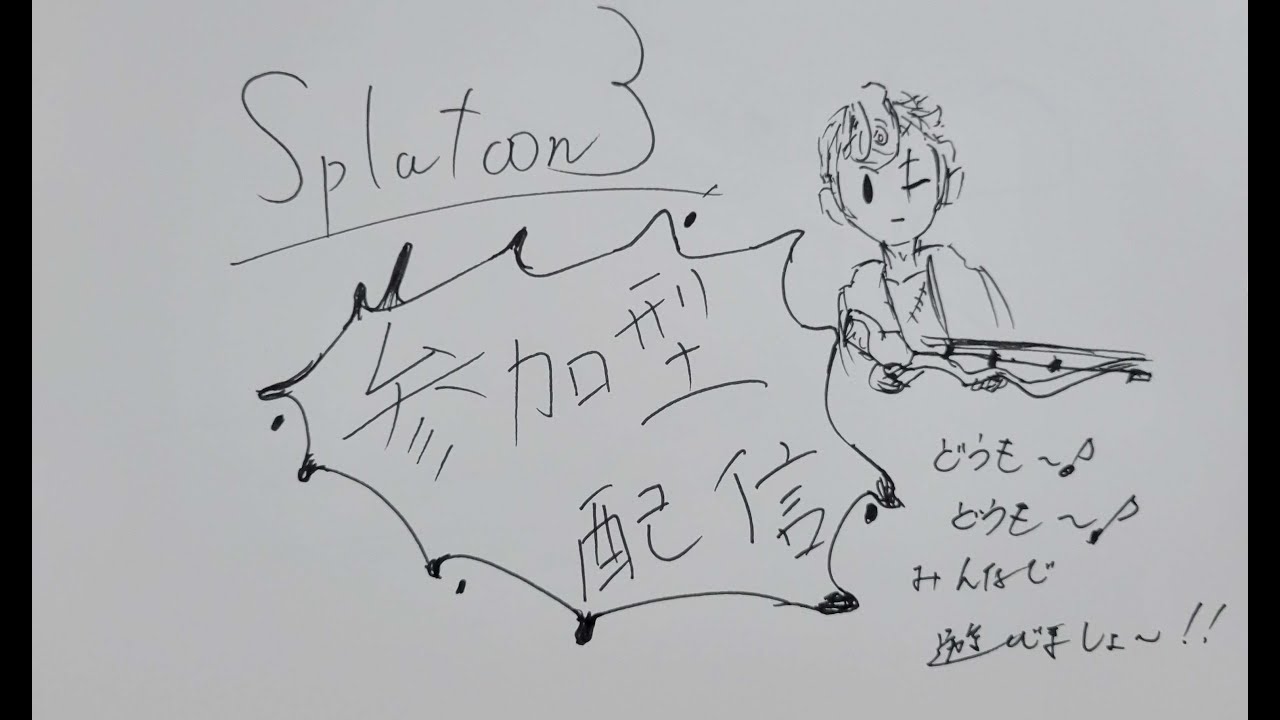 Splatoon3
参加型
配信
どうも～♪
どうも～♪
みんなで
遊びましょ～!!